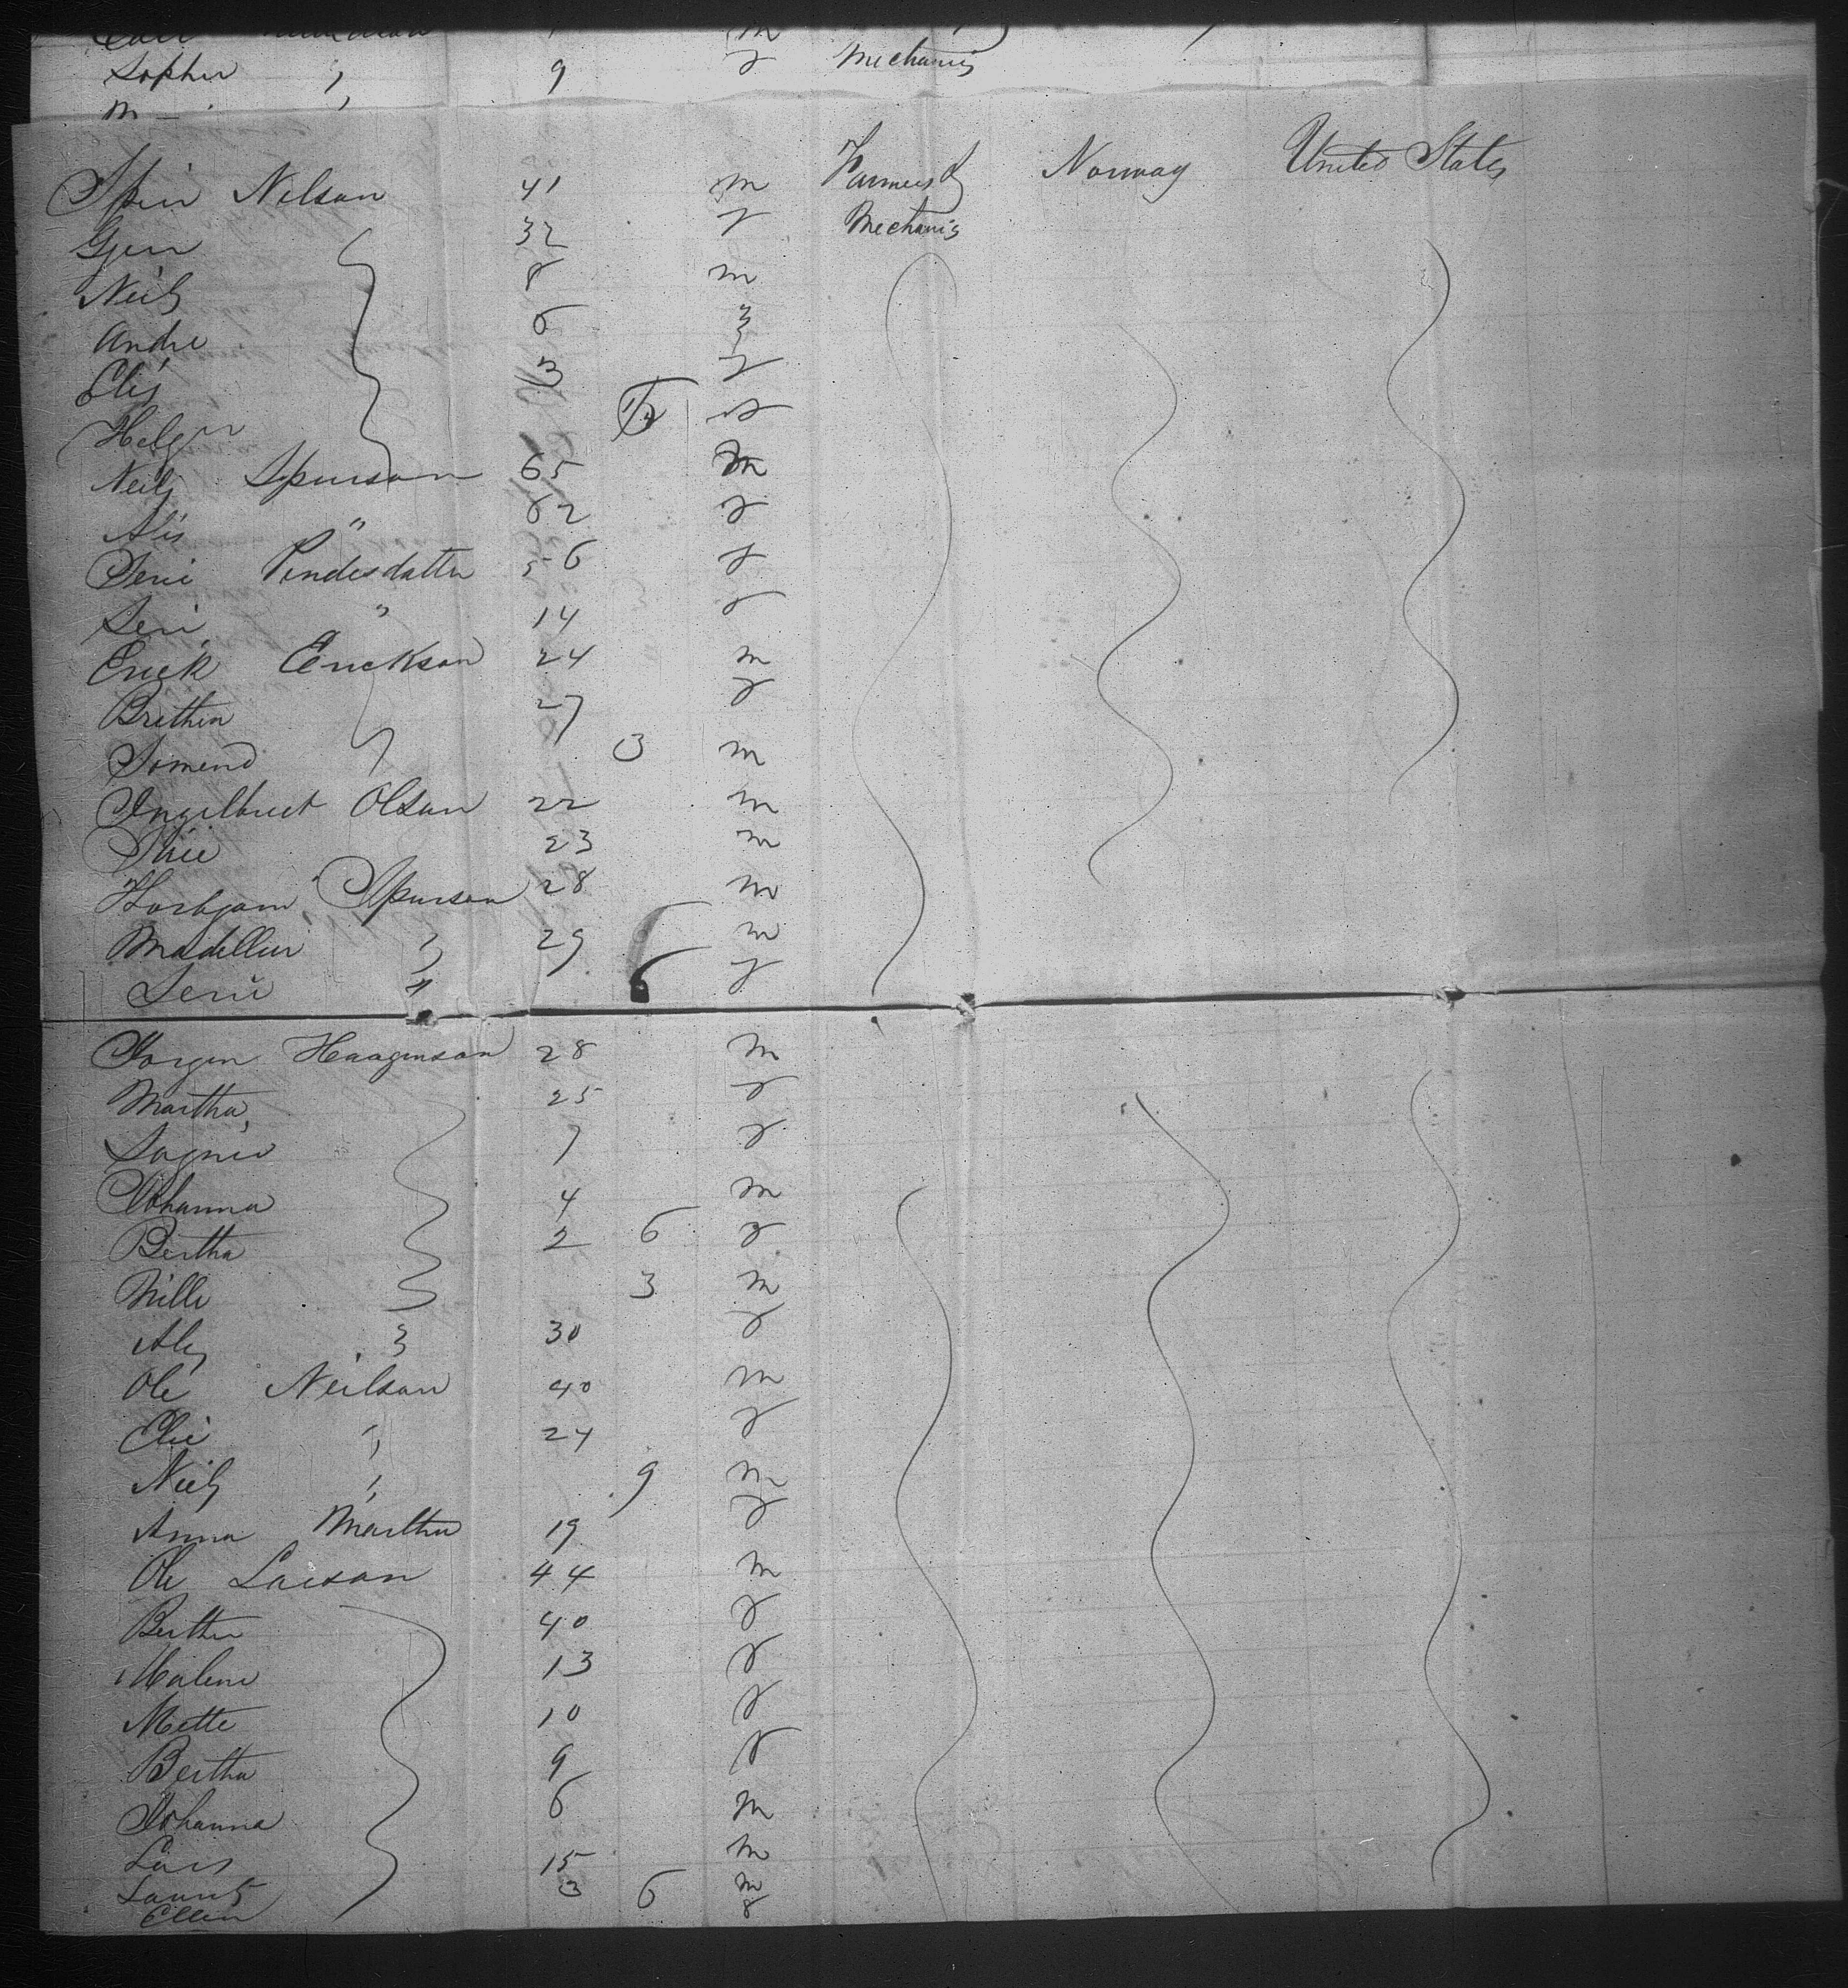 Sophia " 9 f Mechanis
M
Spin Nelson 41 m Farmers & Norway United States
Gjen 32 f Mechanis
Neils 8 m
Andre 6 "
Elis 3 f
Helge 1/2 f
Neils Spurson 65 m
Alis " 62 f
Seni Pendesdatter 56 f
Seni " 14 f
Erick Erickson 24 m
Brethen 27 f
Somend 3 m
Ingelbrect Olsun 22 m
23 m
Torbjorn Spurson 28 m
Madellin " 29 m
Seni " 6 f
Jorgen Haagenson 28 m
Martha 25 f
Sagnid 7 f
Johanna 4 m
Bertha 2 6 f
Nille 3 m
Aly " 30 f
Ole Neilson 40 m
Elie " 24 f
Neils " 9 m
Anna Martha 19 f
Ole Larson 44 m
Bertha 40 f
Malene 13 f
Mette 10 f
Bertha 9 f
Johanna 6 m
Lars 15 m
Launts 3 6 m
Ellen f